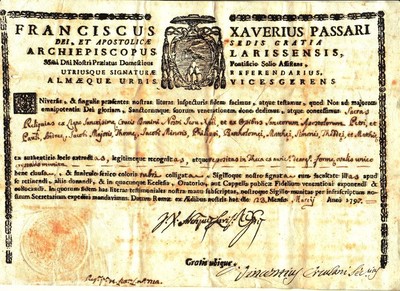 FRANCISCUS XAVERIUS PASSARI
DEI, ET APOSTOLICÆ SEDIS GRATIA
ARCHIEPISCOPUS LARISSENSIS,
SSmi Dñi Nostri Prælatus Domesticus Pontificio Solio Assistens,
UTRIUSQUE SIGNATURÆ REFERENDARIUS,
ALMÆQUE URBIS VICESGERENS
Universis, & singulis præsentes nostras literas inspecturis fidem facimus, atque testamur, quod Nos ad majorem
omnipotentis Dei gloriam, Sanctorumque suorum venerationem, dono dedimus, Sacras
Reliquias ex Ligno Sanctissimæ Crucis Domini Nostri Jesu Xpti, et ex Sanctorum Apostolorum Petri, et
Pauli, Andreæ, Jacobi Majoris, Thomæ, Jacobi Minoris, Philippi, Bartholomei, Matthei, Simonis, Thadei, et Mathiæ
ex authenticis locis extractas, legitimeque recognitas, atque
bene clausa, & funiculo serico coloris rubri colligata, Sigilloque nostro signata cum facultate illas apud
se retinendi, aliis donandi, & in quacumque Ecclesia, Oratorio, aut Cappella publicæ Fidelium venerationi exponendi &
collocandi. In quorum fidem has literas testimoniales nostra manu subscriptas, nostroque Sigillo munitas per infrascriptum nostrum
Secretarium expediri mandavimus. Datum Romæ ex Ædibus nostris hac die 23 Mensis Martij Anno 1797
Gratis ubique.
Vincentius